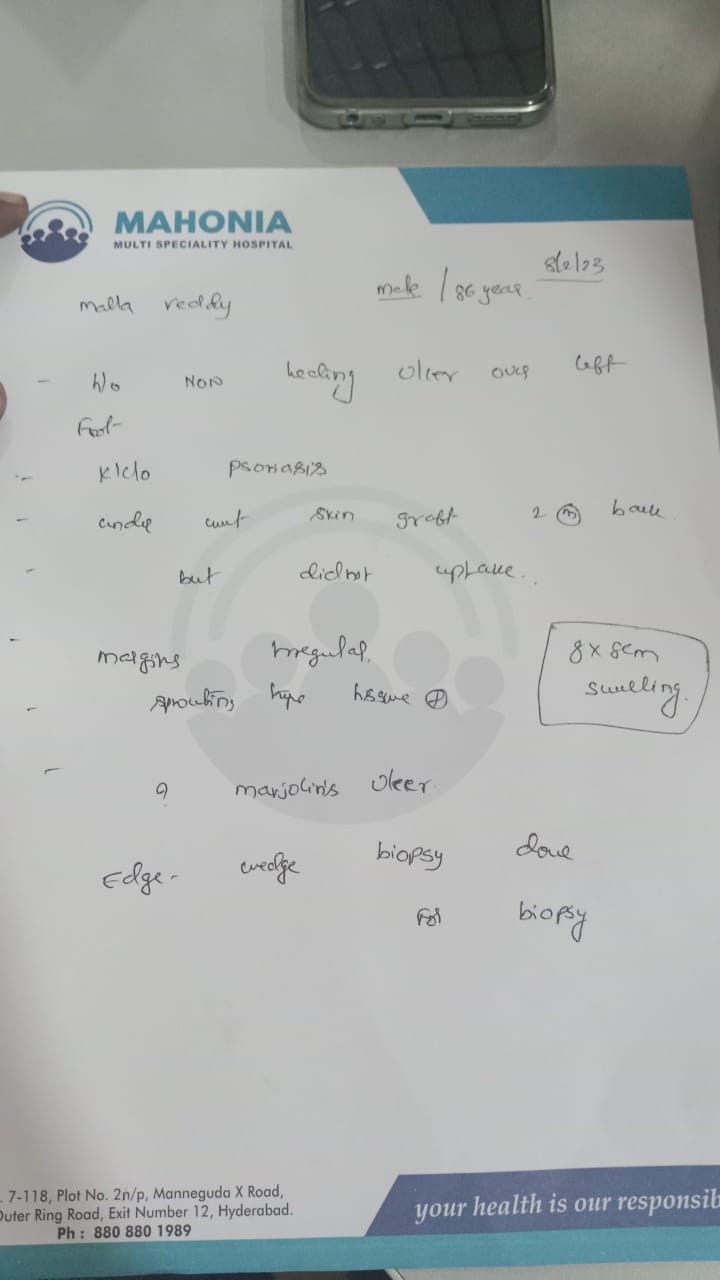 MAHONIA
MULTI SPECIALITY HOSPITAL
8/2/23
malla reddy male / 86 year.
- h/o NON healing Ulcer over left
Foot
- K/c/o psoriasis
- skin graft 2 m back
- but did not uptake..
- margins irregular.
8 x 8cm
swelling.
- sprouting type tissue +
- ? marjolin's Ulcer.
Edge- wedge biopsy done
For biopsy
. 7-118, Plot No. 2n/p, Manneguda X Road,
Outer Ring Road, Exit Number 12, Hyderabad.
Ph : 880 880 1989
your health is our responsib